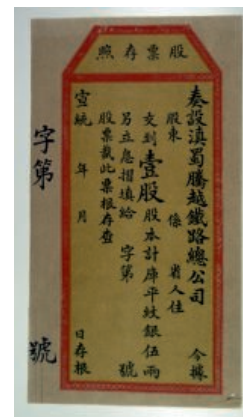 股票存照
奏設滇蜀騰越鐵路總公司 今據
股東 係 省人住
交到壹股股本計庫平紋銀伍兩
另立息摺填給 字第 號
股票裁此票根存查
宣統 年 月 日存根
字第 號